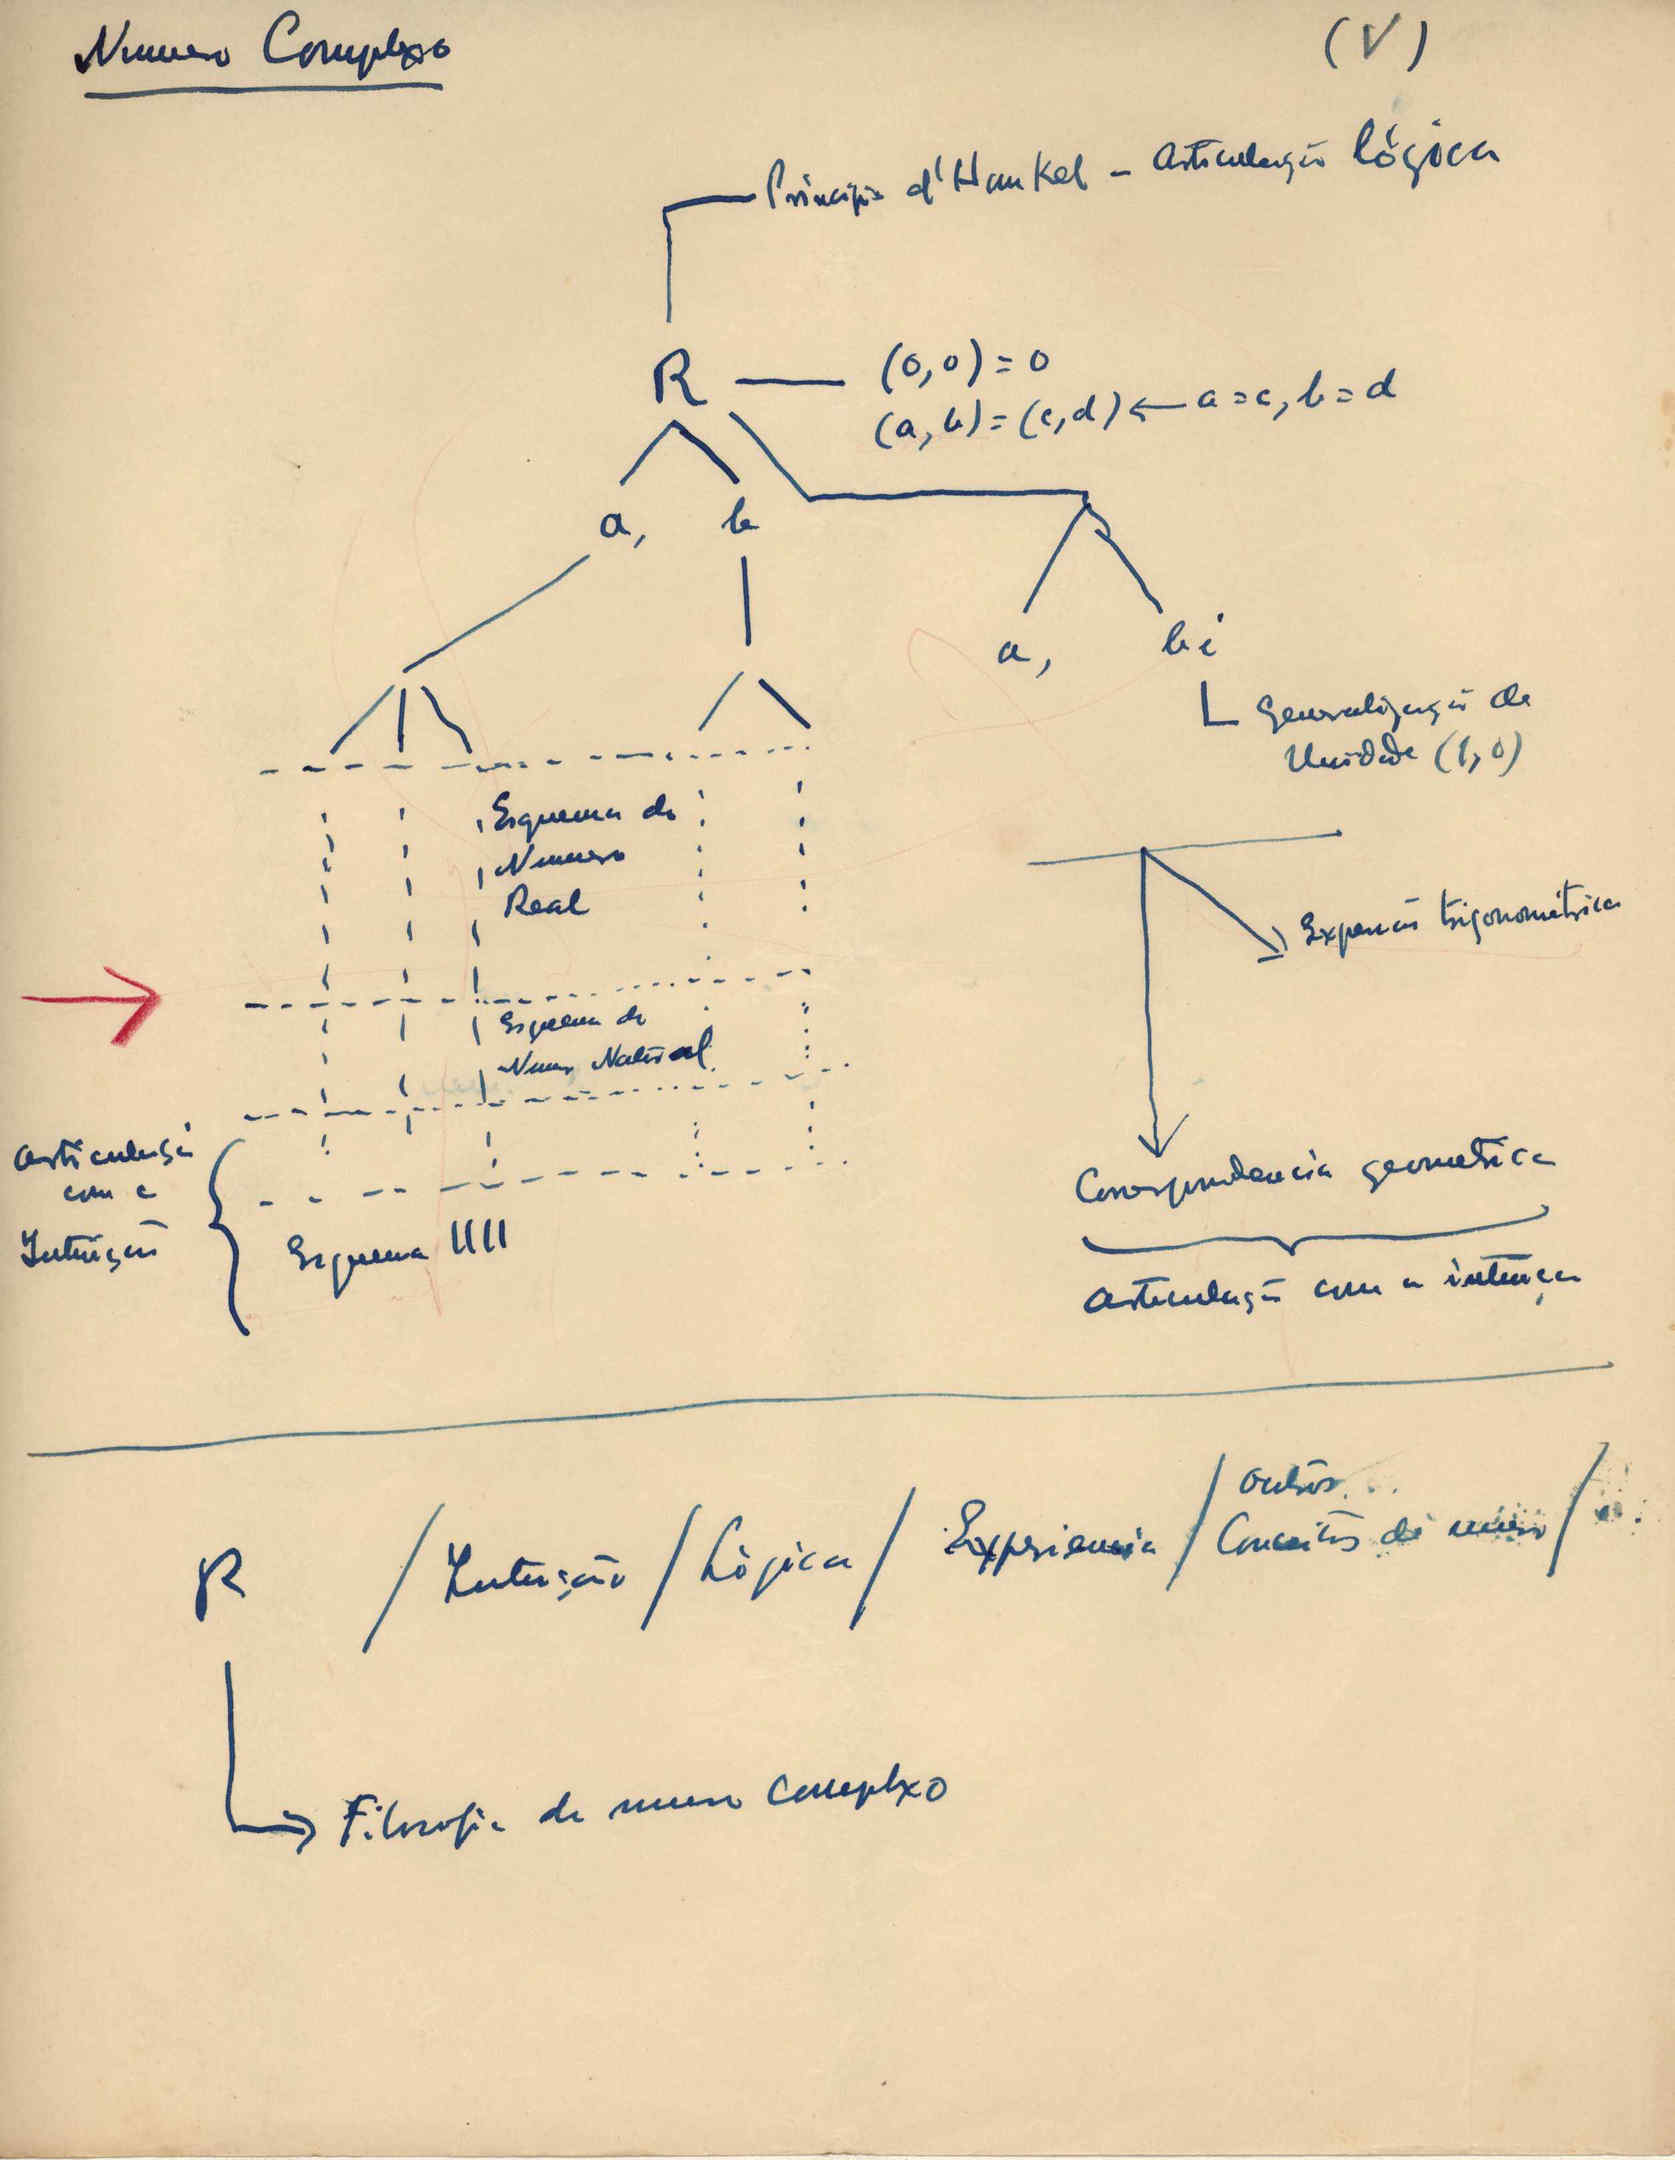 Numero Complexo
(V)
Principio d'Hankel - Articulação lógica
R
(0,0) = 0
(a, b) = (c, d) ← a = c, b = d
a, b
a, bi
Generalização da
Unidade (1,0)
Esquema do
Numero
Real
Expressão trigonométrica
Esquema do
Numero Natural
Articulação
com a
Intuição
Esquema IIII
Correspondencia geometrica
Articulação com a intuição
R / Intuição / Lógica / Experiencia / outros
Conceitos de numero /
Filosofia do numero complexo